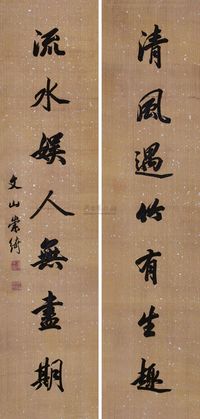 清風遇竹有生趣
流水娱人無盡期
文山崇綺